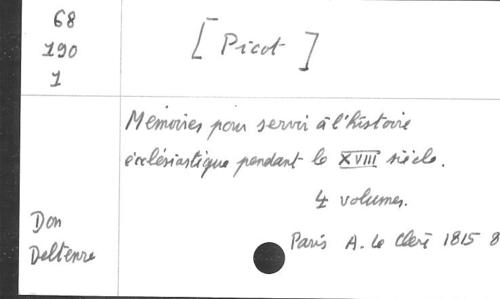 68
190
1
[ Picot ]
Mémoires pour servir à l'histoire
écclésiastique pendant le XVIII siècle.
4 volumes.
Don
Deltenre
Paris A. Le Clerc 1815 8